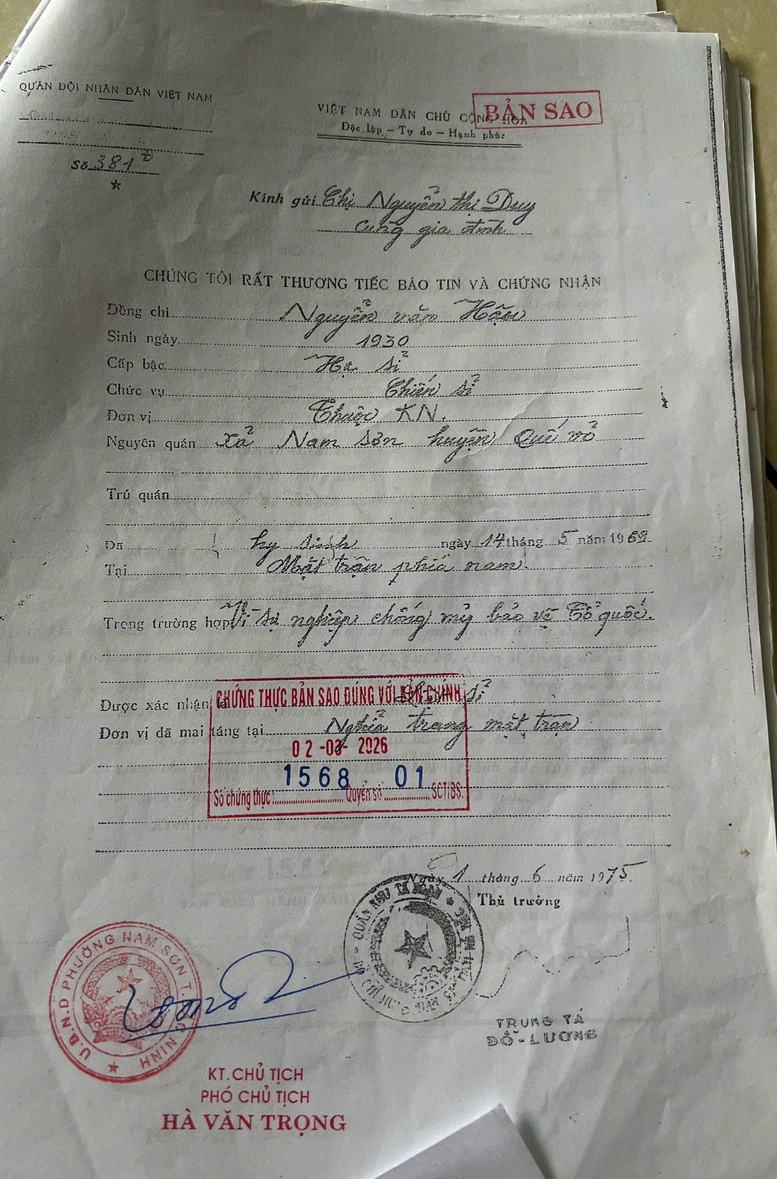 QUÂN ĐỘI NHÂN DÂN VIỆT NAM
VIỆT NAM DÂN CHỦ CỘNG HÒA
BẢN SAO
Độc lập - Tự do - Hạnh phúc
Số 381
Kính gửi Chị Nguyễn thị Duy
cùng gia đình
CHÚNG TÔI RẤT THƯƠNG TIẾC BÁO TIN VÀ CHỨNG NHẬN
Đồng chí Nguyễn văn Hậu
Sinh ngày 1930
Cấp bậc Hạ sĩ
Chức vụ Chiến sĩ
Đơn vị Thuộc KN.
Nguyên quán xã Nam sơn huyện Quế võ
Trú quán
Đã hy sinh ngày 14 tháng 5 năm 1969
Tại Mặt trận phía nam
Trong trường hợp Vì sự nghiệp chống mỹ bảo vệ Tổ quốc.
Được xác nhận là sĩ
Đơn vị đã mai táng tại Nghĩa trang mặt trận
CHỨNG THỰC BẢN SAO ĐÚNG VỚI BẢN CHÍNH
02-03-2026
1568 01
Số chứng thực: Quyển số SCT/BS.
Ngày 1 tháng 6 năm 1975
Thủ trưởng
U.B.N.D PHƯỜNG NAM SƠN T. BẮC NINH
TRUNG TÁ
ĐỖ-LƯƠNG
KT. CHỦ TỊCH
PHÓ CHỦ TỊCH
HÀ VĂN TRỌNG